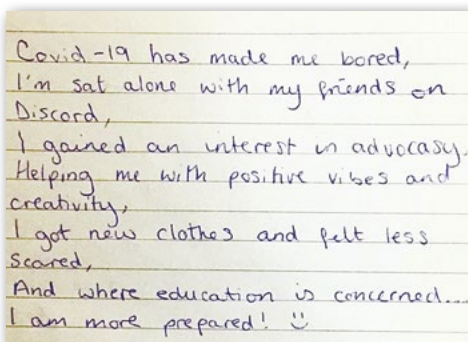 Covid-19 has made me bored,
I'm sat alone with my friends on
Discord,
I gained an interest in advocasy.
Helping me with positive vibes and
creativity,
I got new clothes and felt less
scared,
And where education is concerned...
I am more prepared! :)